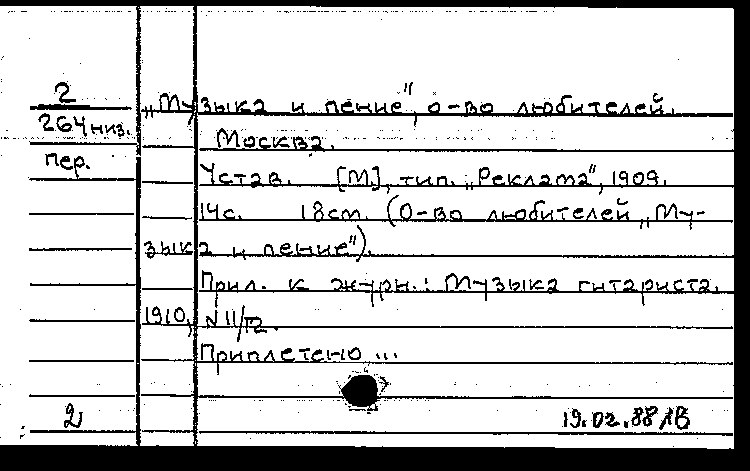 2
264 низ.
пер.
„Музыка и пение", о-во любителей.
Москва.
Устав. [М.], тип. „Реклама", 1909.
14с. 18см. (О-во любителей „Му-
зыка и пение").
Прил. к журн.: Музыка гитариста.
1910, N 11/12.
Приплетено ...
2
19.02.88